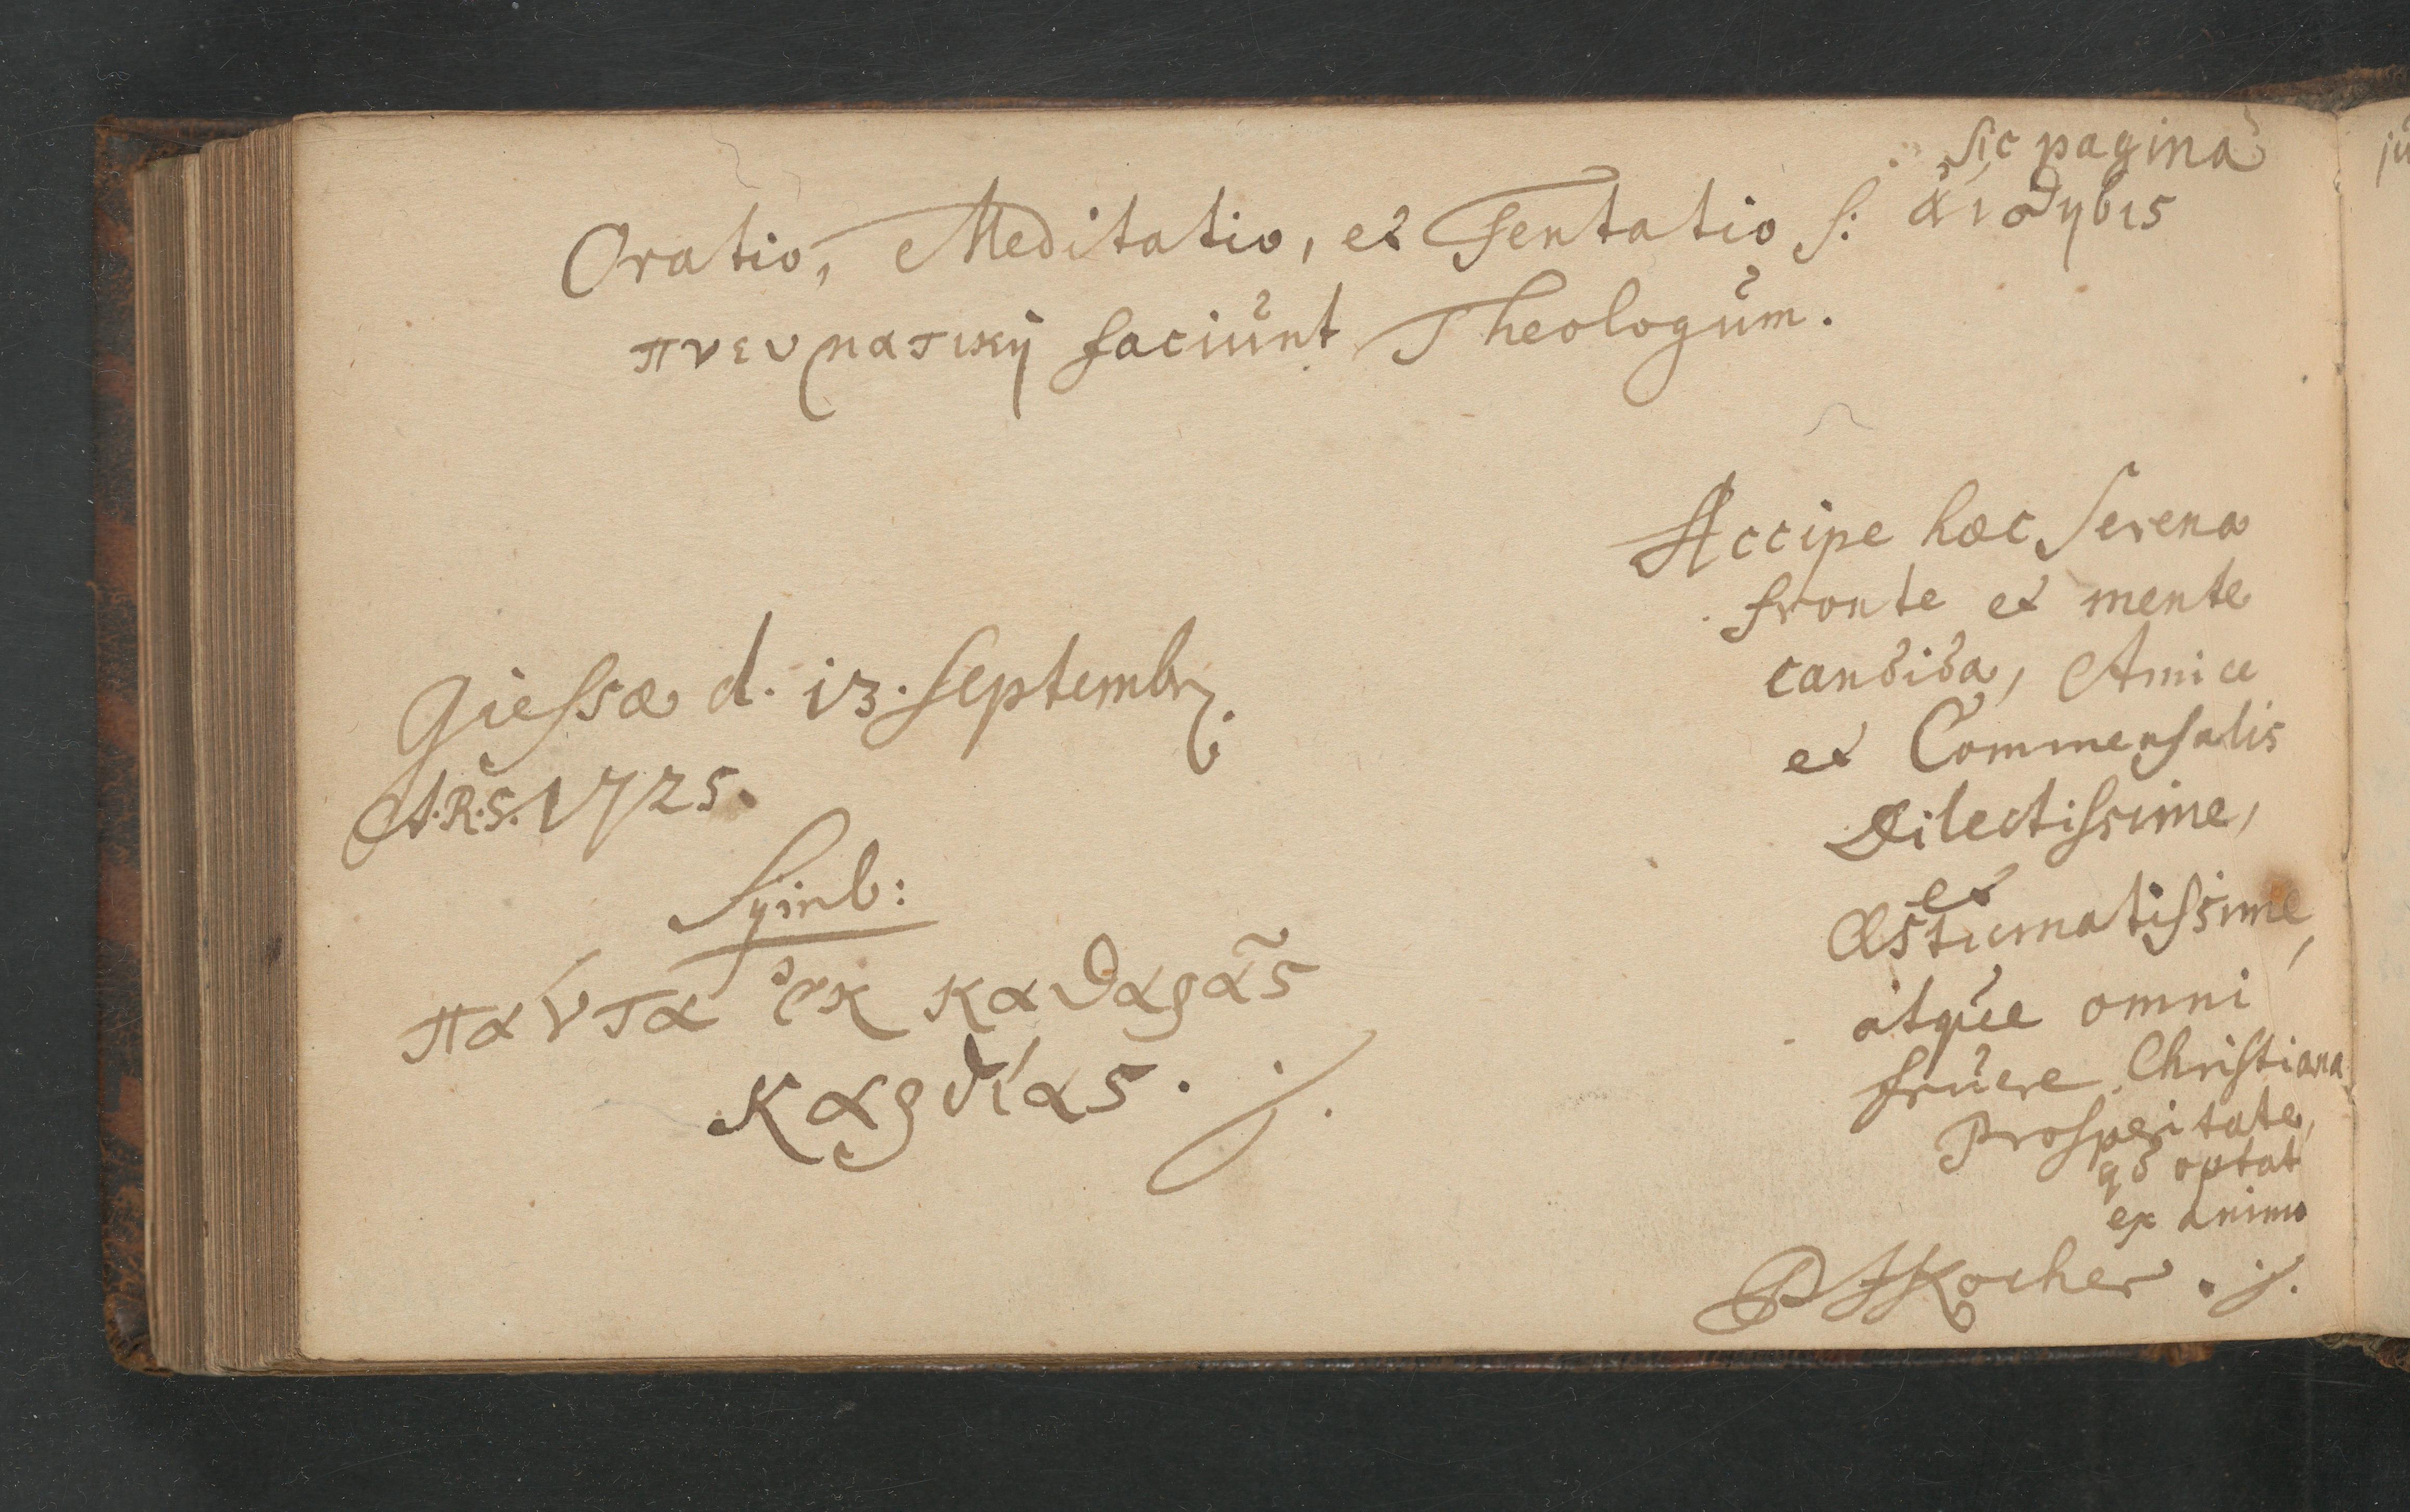 sic pagina
Oratio, Meditatio, et Tentatio s: αἴσθησις
πνευματικὴ faciunt Theologum.
Accipe hæc serena
fronte et mente
candida, Amice
et Commensalis
Dilectissime,
et
Æstumatissime,
atque omni
fruere Christiana
Prosperitate,
qd optat
ex animo
Kocher.
Giessæ d. 13. Septembr.
A.R.S. 1725.
Symb:
πάντα ἐκ καθαρᾶς
καρδίας.